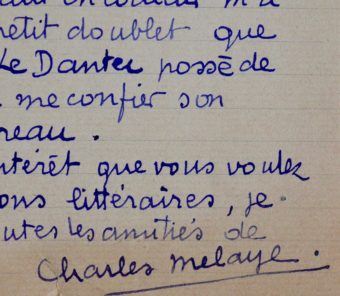 petit doublet que
Le Dantec possède
me confier son
reau.
ntérêt que vous voulez
ons littéraires, je
utes les amitiés de
Charles Melaye.